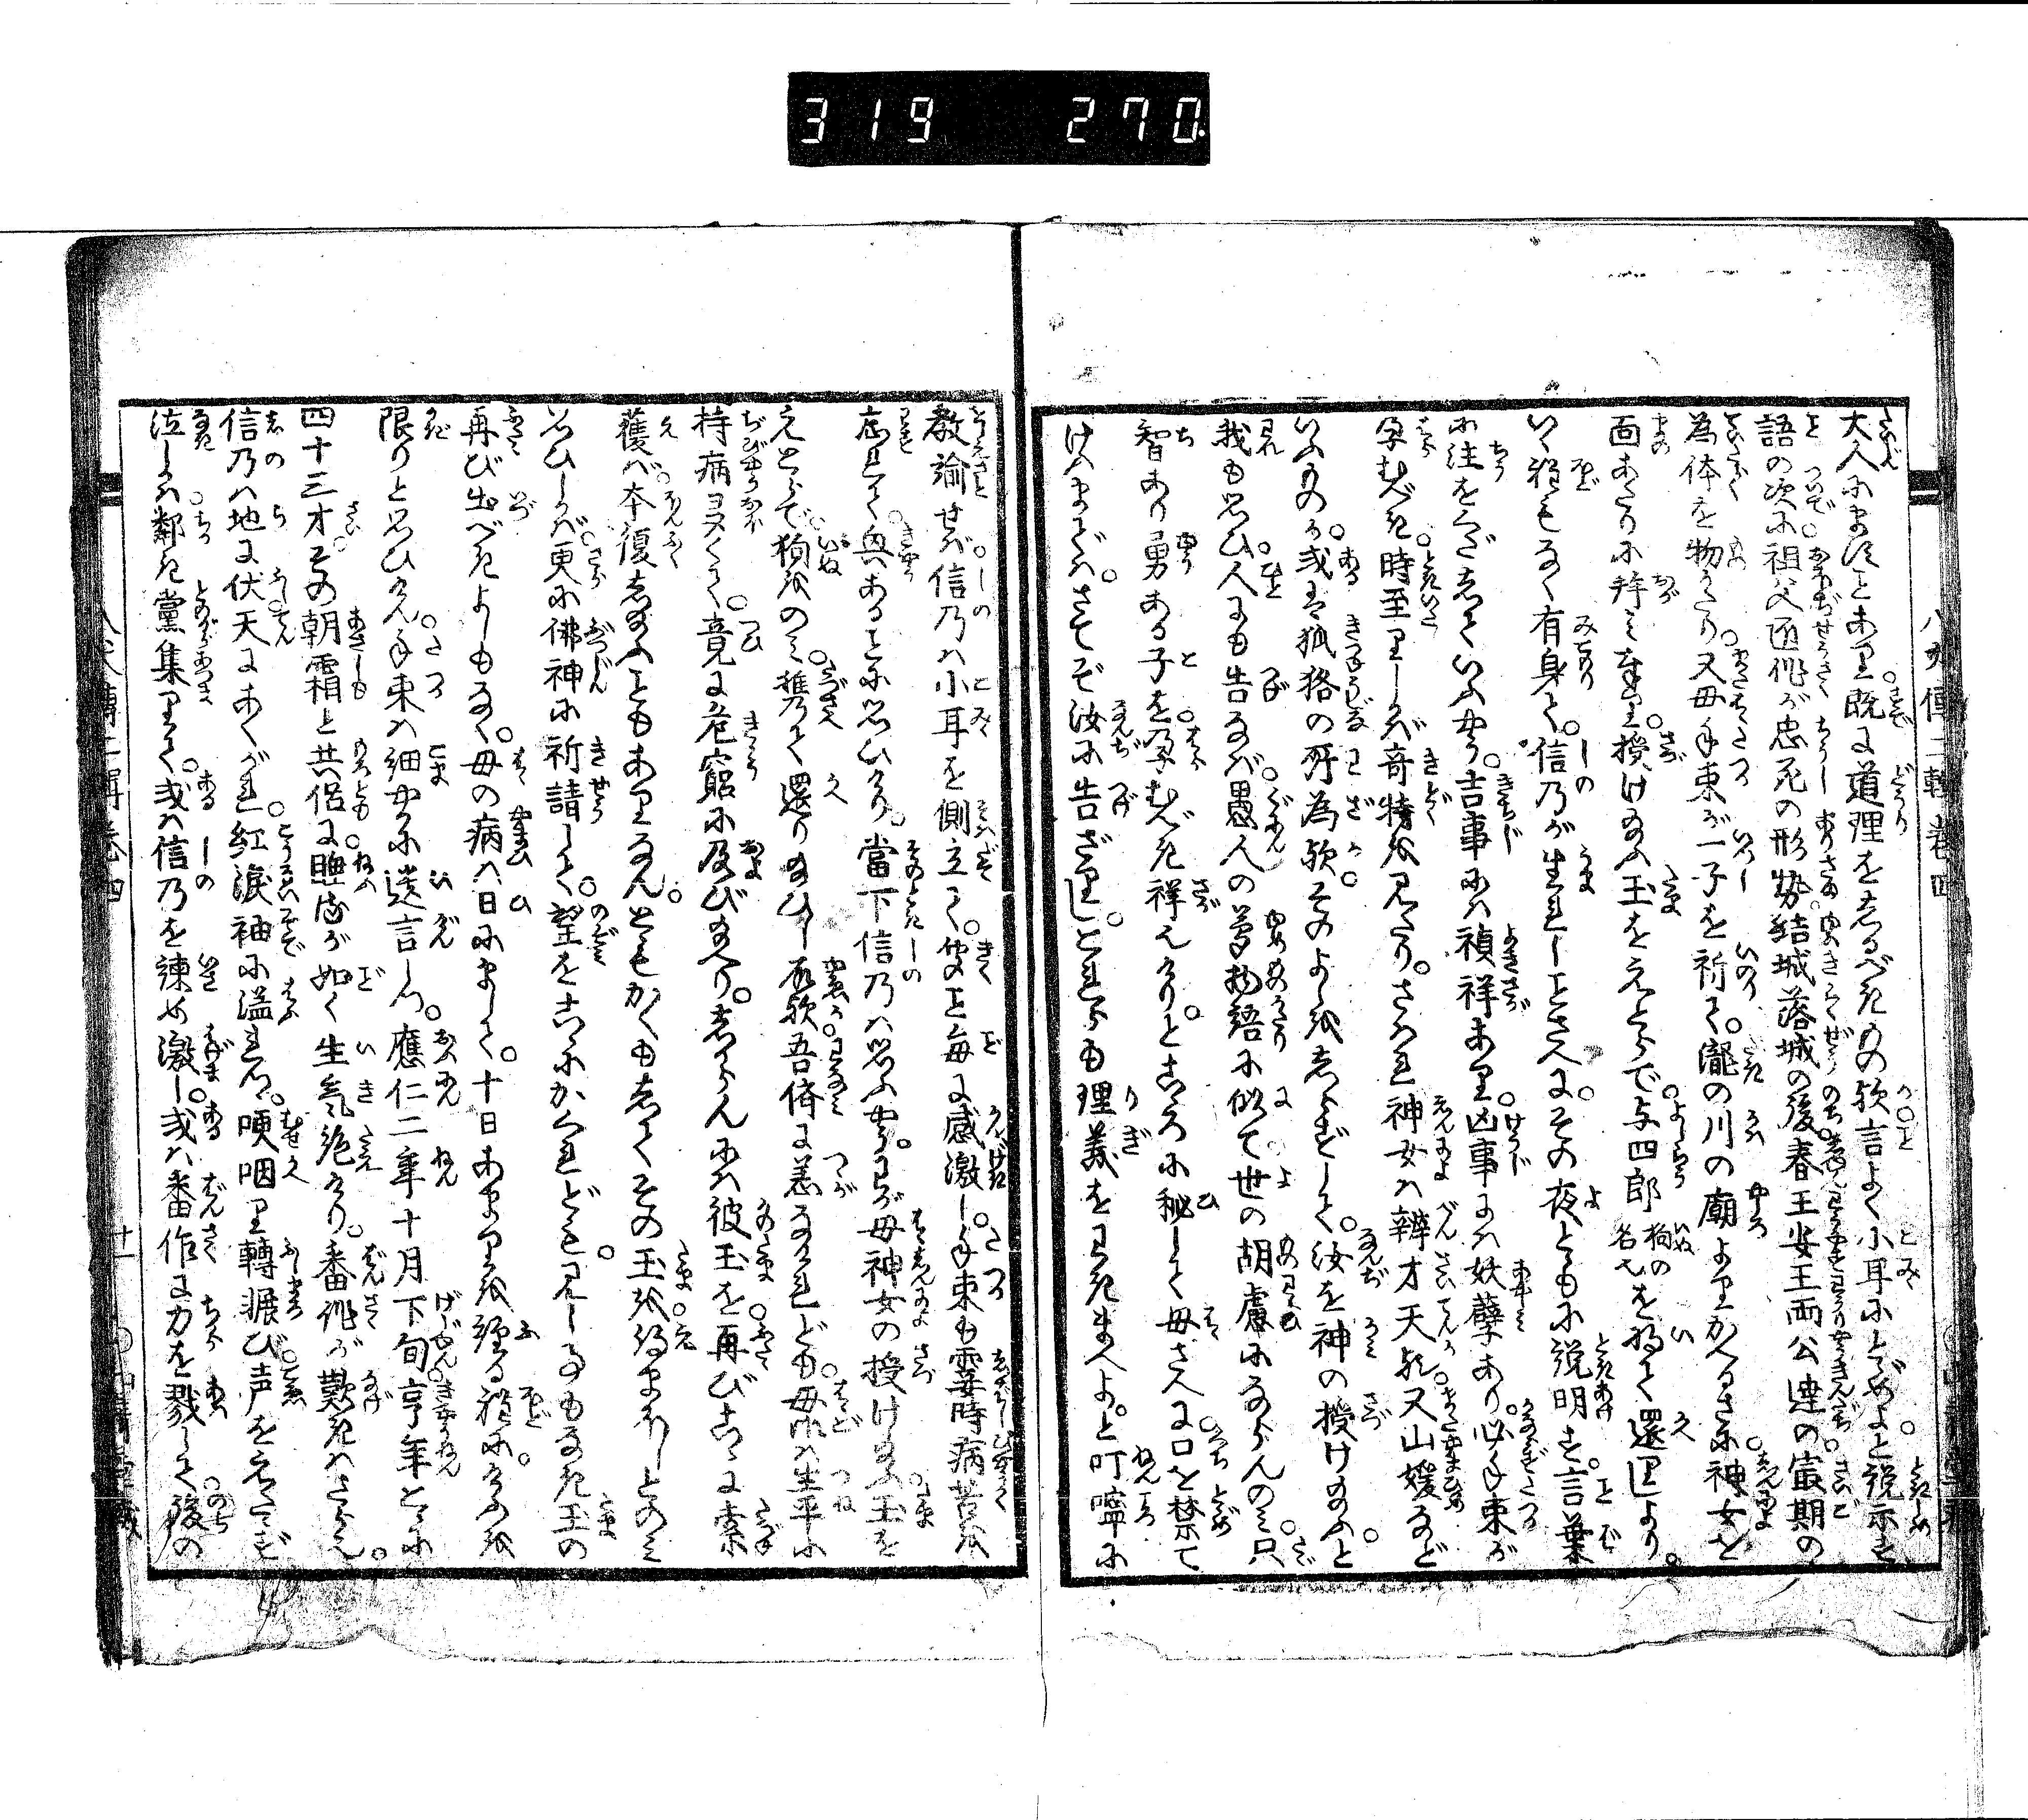 319 270
八犬傳二輯卷四
大人にませにとあり既に道理をしるべきもの歟言よく小耳にとゞめよと説示す
語の次に祖父匠作が忠死の形勢結城落城の後春王安王両公達の㝡期の
為体を物かたり又母手束が一子を祈て瀧の川の廟よりかへるさに神女を
面あたりに拜み奉り授け給ふ玉をえとらで与四郎狗の名也を将て還りしより
いく程もなく有身て信乃が生れしことさへにその夜ともに説明す言葉
に注をくだしていふやう吉事には禎祥あり凶事には妖孽あり必手束が
孕むべき時至りしかば奇特を見たりされ神女は辨才天歟又山媛など
いふもの歟或は狐狢の所為歟そのよしをしらずして汝を神の授け給ふと
我も思ひ人にも告なば愚人の夢物語に似て世の胡慮にならんのみ只
智あり勇ある子を孕むべき祥也けりとこゝろに秘して母さへに口を禁て
けふまではさてぞ汝に告ざりしとれらも理義をわきまへよと叮嚀に
教諭せば信乃は小耳を側立て聞こと毎に感激し手束も霎時病苦を
忘れて興あることに思ひけり當下信乃は思ふやうわが母神女の授け給ふ玉を
えとらで狗をのみ携て還り給ひし所歟吾儕は恙なけれども母は生平に
持病多くて竟に危窮に及び給へりしからんには彼玉を再びこゝに索
獲ば本復し給ふこともありなんともかくもしてその玉を得まほしとのみ
思ひしかば更に佛神に祈請して望をこゝにかくれども見し事もなき玉の
再び出べきよしもなく母の病は日にまして十日あまりを經る程にけふを
限りと思ひけん手束は細やかに遺言しつ應仁二年十月下旬亨年こゝに
四十三才その朝霜と共侶に睡るが如く生氣絶けり番作が歎きはさら也
信乃は地に伏天にあくがれ紅淚袖に溢れつゝ哽咽り轉輾び声を立ず
泣しかは鄰き黨集りて或は信乃を諫め激し或は番作に力を戮して後の
八犬傳二輯卷四
十一